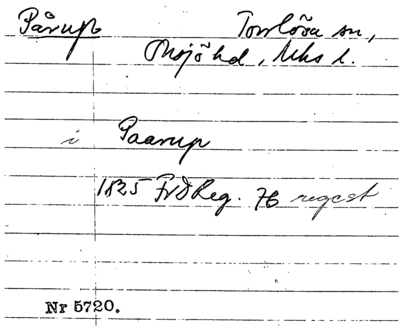 Pårup Torrlösa sn,
Onsjö hd, Mhs l.
i Paarup
1825 FrdReg. 76 regest
Nr 5720.